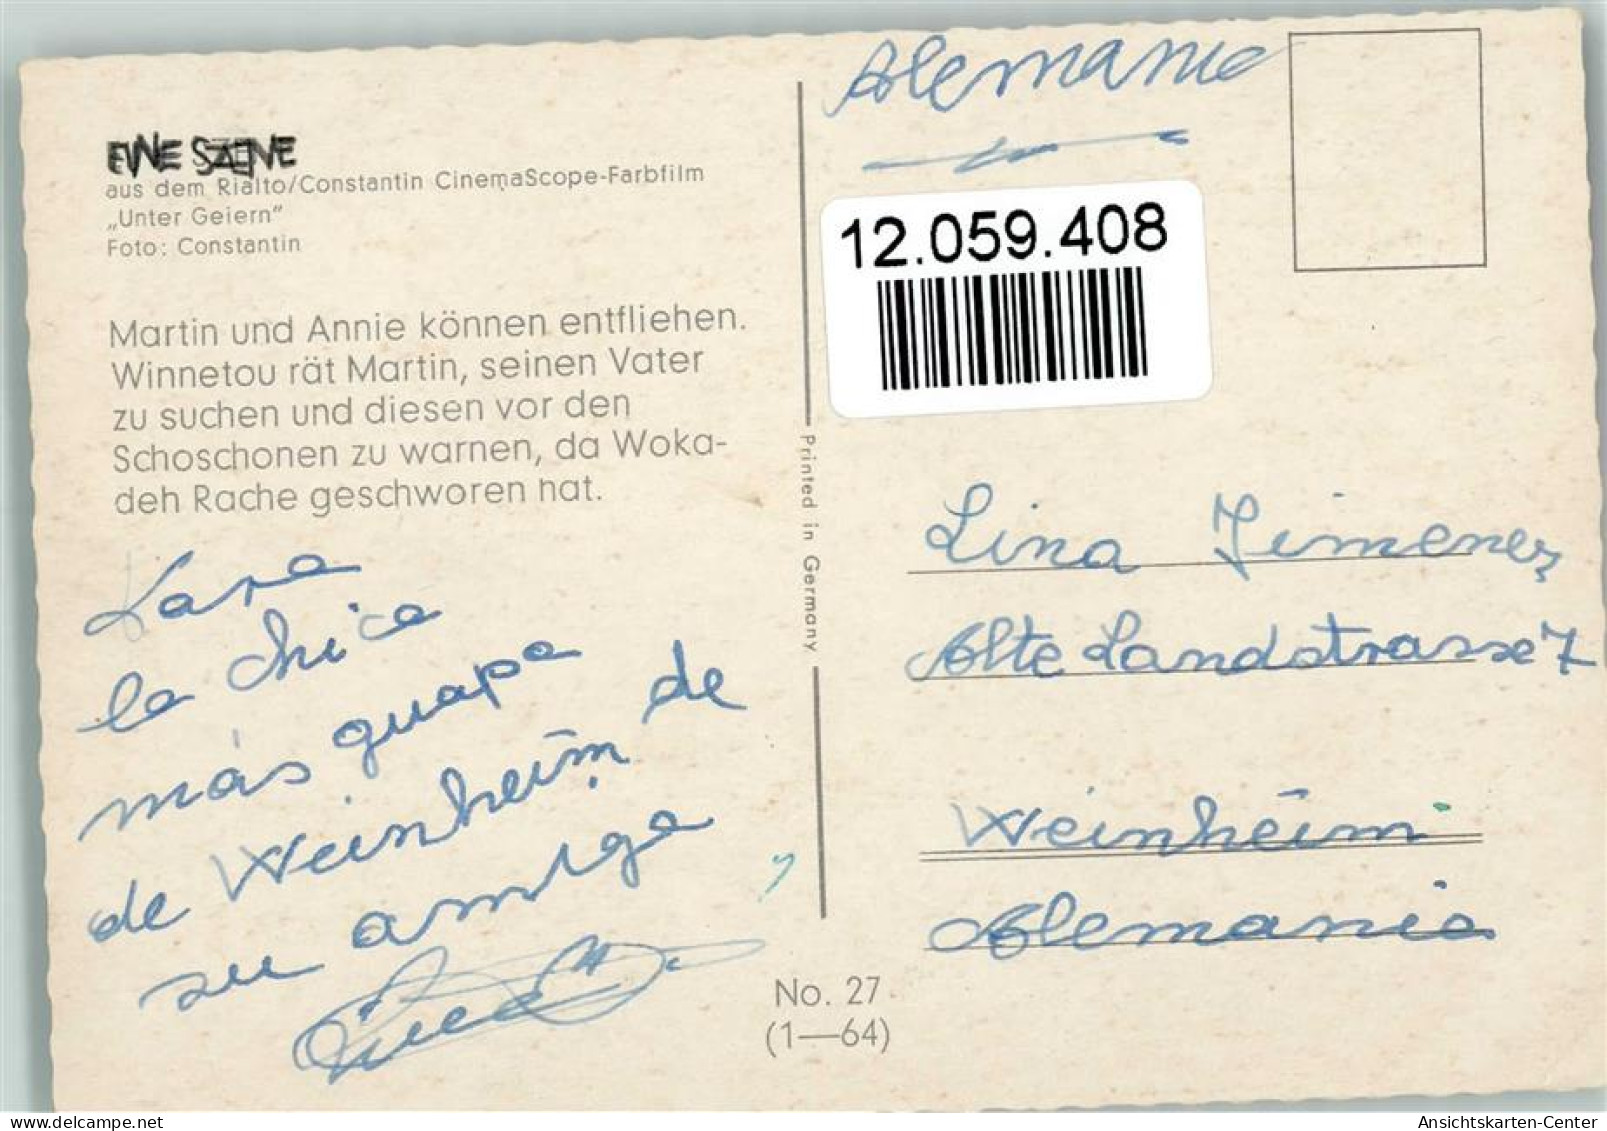 EINE SZENE
aus dem Rialto/Constantin CinemaScope-Farbfilm
„Unter Geiern"
Foto: Constantin
Martin und Annie können entfliehen.
Winnetou rät Martin, seinen Vater
zu suchen und diesen vor den
Schoschonen zu warnen, da Woka-
deh Rache geschworen hat.
Para
la chica
más guapa
de Weinheim de
su amiga
No. 27
(1—64)
Printed in Germany
Alemania
12.059.408
Lina Jimenez
Alte Landstrasse 7
Weinheim
Alemania
Ansichtskarten-Center